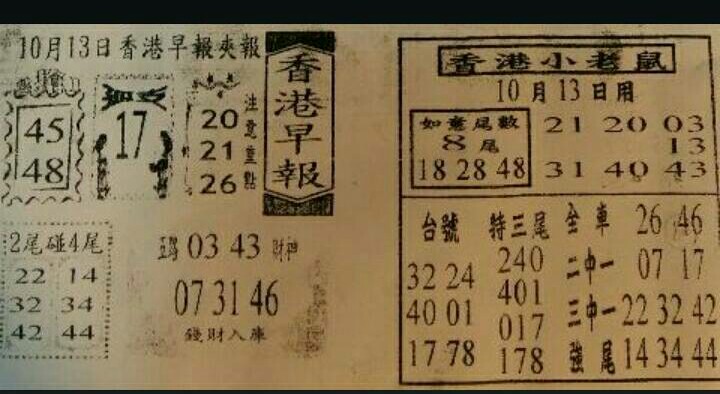 10月13日香港早報夾報
香港早報
45
48
17
20
21
26
注意重點
2尾碰4尾
22 14
32 34
42 44
03 43 財神
07 31 46
錢財入庫
香港小老鼠
10月13日用
如意尾數
8尾
18 28 48
21 20 03
13
31 40 43
台號
32 24
40 01
17 78
特三尾
240
401
017
178
全車 26 46
二中一 07 17
三中一 22 32 42
強尾 14 34 44